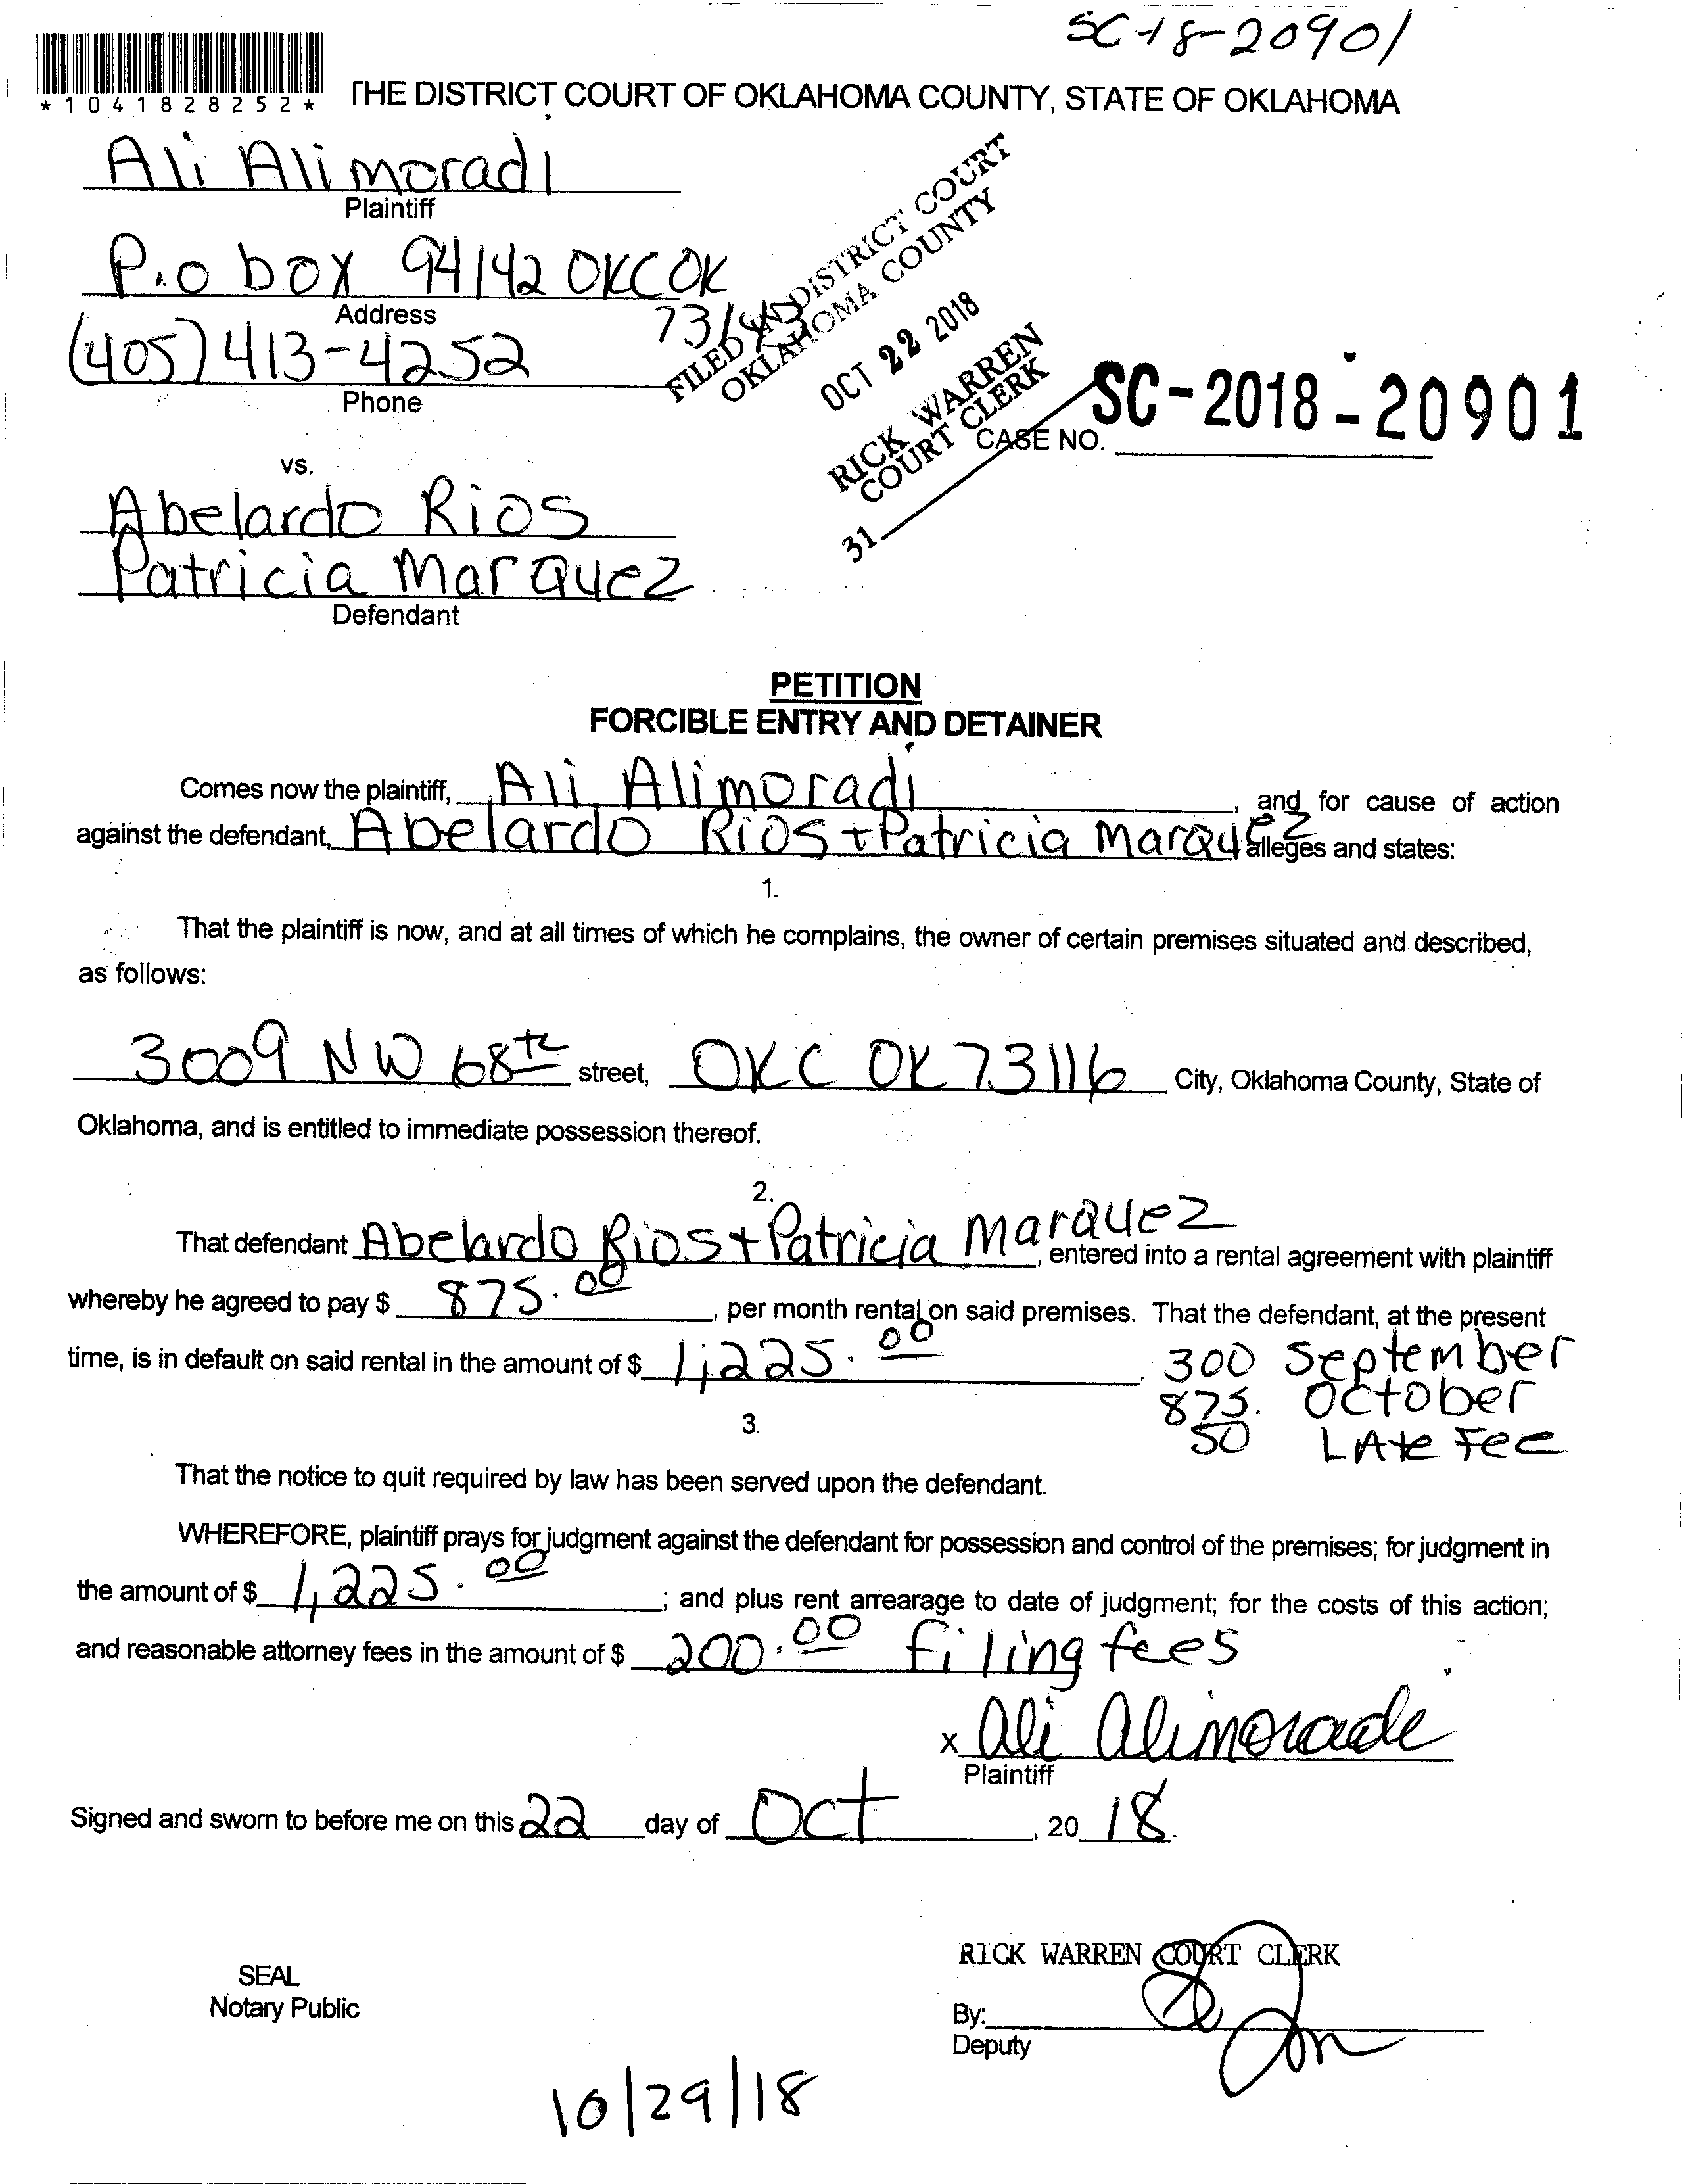 SC-18-20901
*1041828252*
THE DISTRICT COURT OF OKLAHOMA COUNTY, STATE OF OKLAHOMA
Ali Alimoradi
Plaintiff
P.O box 94142 OKC OK
Address
73143
(405) 413-4252
Phone
FILED IN DISTRICT COURT
OKLAHOMA COUNTY
OCT 22 2018
RICK WARREN
COURT CLERK
31
SC-2018-20901
CASE NO.
vs.
Abelardo Rios
Patricia Marquez
Defendant
PETITION
FORCIBLE ENTRY AND DETAINER
Comes now the plaintiff, Ali Alimoradi, and for cause of action
against the defendant, Abelardo Rios + Patricia Marquez alleges and states:
1.
That the plaintiff is now, and at all times of which he complains, the owner of certain premises situated and described,
as follows:
3009 NW 68th street, OKC OK 73116 City, Oklahoma County, State of
Oklahoma, and is entitled to immediate possession thereof.
2.
That defendant Abelardo Rios + Patricia Marquez, entered into a rental agreement with plaintiff
whereby he agreed to pay $ 875.00, per month rental on said premises. That the defendant, at the present
time, is in default on said rental in the amount of $ 1,225.00.
300 September
875. October
50 LAte Fee
3.
That the notice to quit required by law has been served upon the defendant.
WHEREFORE, plaintiff prays for judgment against the defendant for possession and control of the premises; for judgment in
the amount of $ 1,225.00; and plus rent arrearage to date of judgment; for the costs of this action;
and reasonable attorney fees in the amount of $ 200.00 filing fees
x Ali Alimorade
Plaintiff
Signed and sworn to before me on this 22 day of Oct, 20 18.
RICK WARREN COURT CLERK
SEAL
Notary Public
By:
Deputy
10/29/18